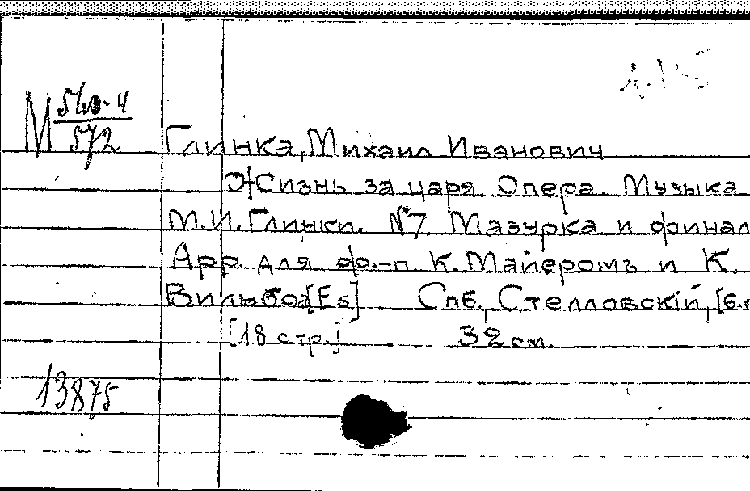 М 560-4
572
Глинка, Михаил Иванович
Жизнь за царя Опера. Музыка
М.И. Глинки. №7 Мазурка и финал
Арр. для фо.-п. К. Майеромъ и К.
Вильбоа [Es] Спб., Стелловскій, [б.г
[18 стр.] 32 см.
13875